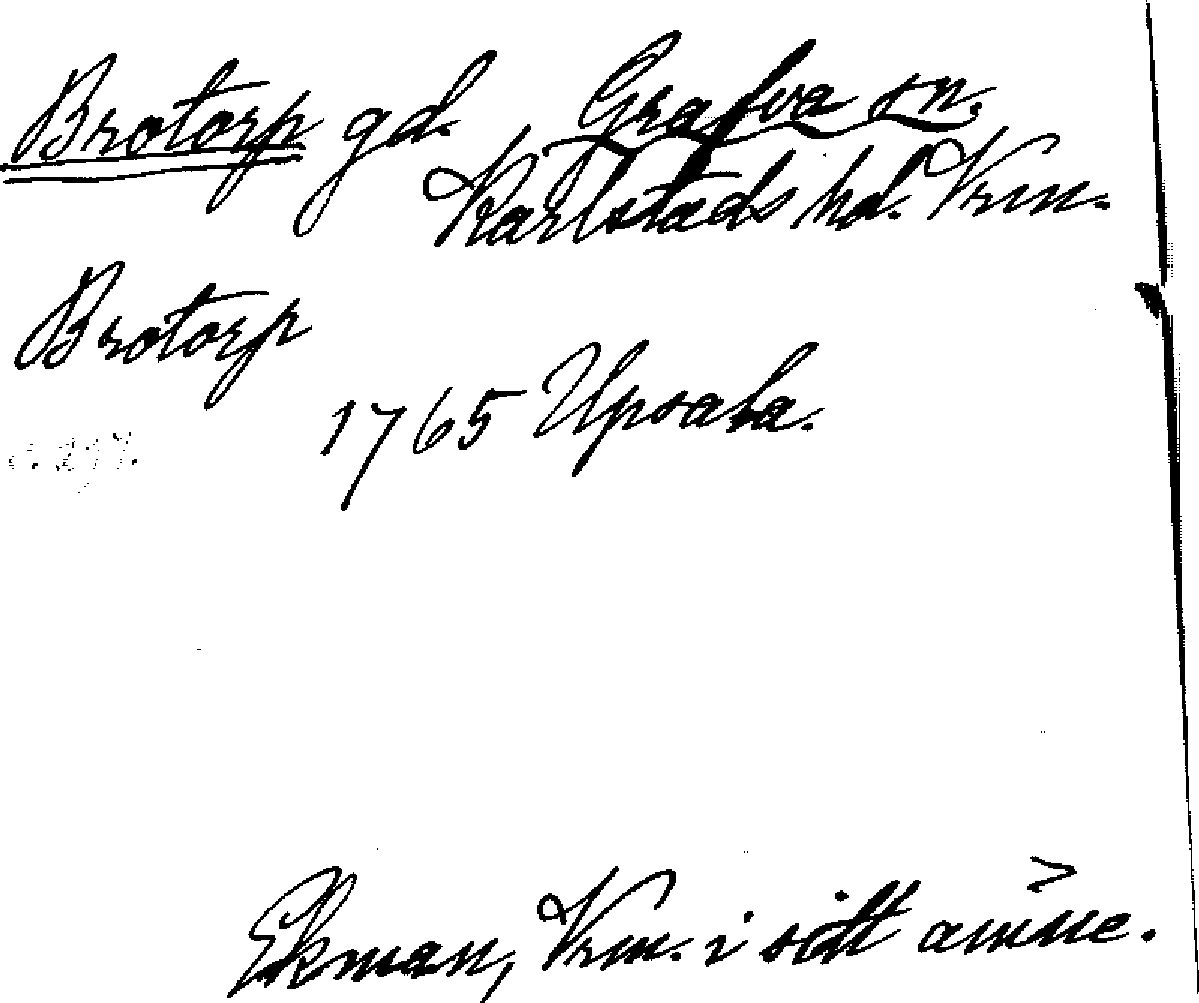 Brotorp gd. Grafva sn.
Karlstads hd. Vrm.
Brotorp
1765 Upsala.
Ekman, Vrm. i sitt ämne.